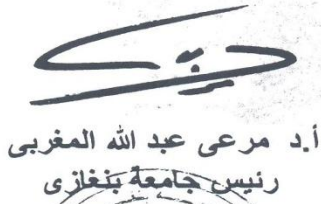 أ.د مرعى عبد الله المغربى
رئيس جامعة بنغازى